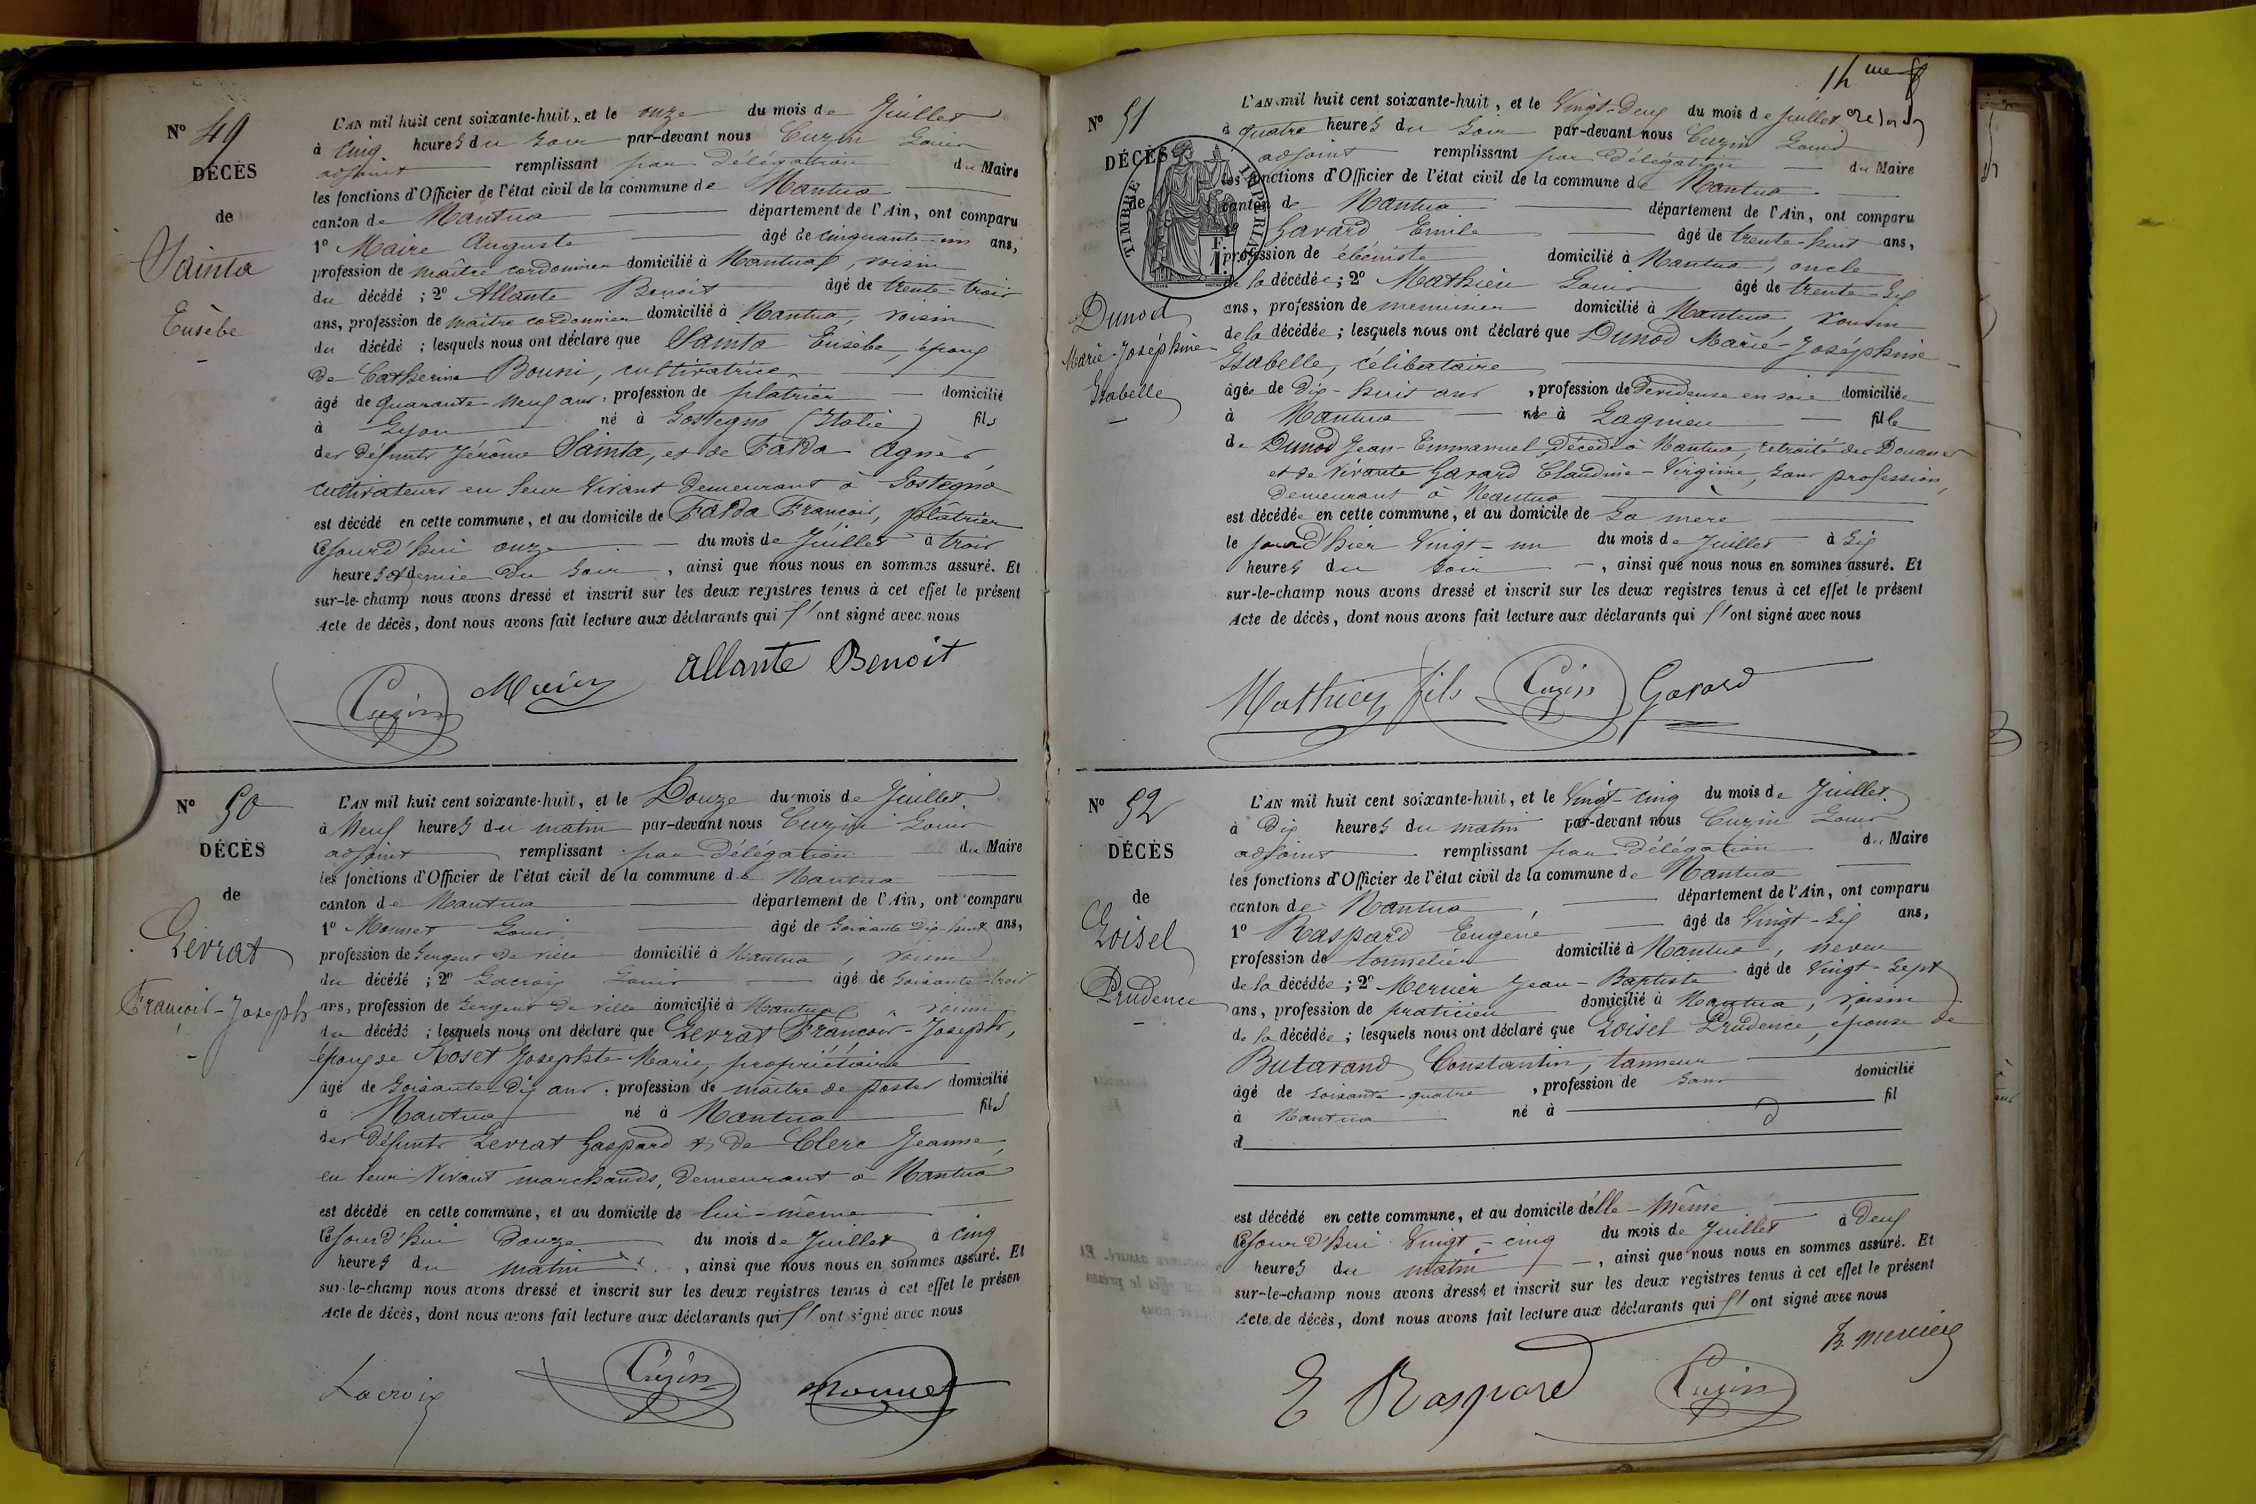 N° 49
DÉCÈS
de
Sainta
Eusèbe
L'AN mil huit cent soixante-huit, et le onze du mois de Juillet
à cinq heures du soir par-devant nous Cuzin Louis
adjoint remplissant par Délégation du Maire
les fonctions d'Officier de l'état civil de la commune de Nantua
canton de Nantua département de l'Ain, ont comparu
1° Maire Auguste âgé de cinquante-un ans,
profession de maître cordonnier domicilié à Nantua, voisin
du décédé ; 2° Allante Benoit âgé de trente-trois
ans, profession de maître cordonnier domicilié à Nantua, voisin
du décédé ; lesquels nous ont déclaré que Sainta Eusèbe, époux
de Catherine Bouni, cultivatrice
âgé de quarante-neuf ans, profession de plâtrier domicilié
à Lyon né à Sostegno (Italie) fils
des défunts Jérôme Sainta, et de Falda Agnès,
cultivateurs en leur vivant demeurant à Sostegno
est décédé en cette commune, et au domicile de Falda François, plâtrier
cejourd'hui onze du mois de Juillet à trois
heures et demie du soir, ainsi que nous nous en sommes assuré. Et
sur-le-champ nous avons dressé et inscrit sur les deux registres tenus à cet effet le présent
Acte de décès, dont nous avons fait lecture aux déclarants qui l'ont signé avec nous
Cuzin Allante Benoit
N° 50
DÉCÈS
de
Levrat
François-Joseph
L'AN mil huit cent soixante-huit, et le Douze du mois de Juillet
à neuf heures du matin par-devant nous Cuzin Louis
adjoint remplissant par Délégation du Maire
les fonctions d'Officier de l'état civil de la commune de Nantua
canton de Nantua département de l'Ain, ont comparu
1° Monnet Louis âgé de soixante dix-huit ans,
profession de sergent de ville domicilié à Nantua, voisin
du décédé ; 2° Lacroix Louis âgé de soixante-trois
ans, profession de sergent de ville domicilié à Nantua voisin
du décédé ; lesquels nous ont déclaré que Levrat François-Joseph,
époux de Roset Josephte-Marie, propriétaire
âgé de soixante-dix ans, profession de maître de postes domicilié
à Nantua né à Nantua fils
des défunts Levrat Gaspard & de Clerc Jeanne,
en leur vivant marchands, demeurant à Nantua
est décédé en cette commune, et au domicile de lui-même
cejourd'hui douze du mois de Juillet à cinq
heures du matin, ainsi que nous nous en sommes assuré. Et
sur-le-champ nous avons dressé et inscrit sur les deux registres tenus à cet effet le présen
Acte de décès, dont nous avons fait lecture aux déclarants qui l'ont signé avec nous
Lacroix Cuzin Monnet
N° 51
DÉCÈS
de
TIMBRE IMPÉRIAL
Dunod
Marie-Joséphine
Isabelle
L'AN mil huit cent soixante-huit, et le Vingt-Deux du mois de Juillet
à quatre heures du soir par-devant nous Cuzin Louis
adjoint remplissant par Délégation du Maire
les fonctions d'Officier de l'état civil de la commune de Nantua
canton de Nantua département de l'Ain, ont comparu
Gavard Emile âgé de trente-huit ans,
profession de ébéniste domicilié à Nantua, oncle
de la décédée ; 2° Mathieu Louis âgé de trente-six
ans, profession de menuisier domicilié à Nantua, cousin
de la décédée ; lesquels nous ont déclaré que Dunod Marie-Joséphine
Isabelle, célibataire
âgée de dix-huit ans, profession de Dévideuse en soie domiciliée
à Nantua née à Lagnieu fille
de Dunod Jean-Emmanuel, décédé à Nantua, retraité des Douanes
et de vivante Gavard Claudine-Virginie, sans profession,
demeurant à Nantua
est décédée en cette commune, et au domicile de sa mère
le jour d'hier vingt-un du mois de Juillet à six
heures du soir, ainsi que nous nous en sommes assuré. Et
sur-le-champ nous avons dressé et inscrit sur les deux registres tenus à cet effet le présent
Acte de décès, dont nous avons fait lecture aux déclarants qui l'ont signé avec nous
Mathieu fils Cuzin Gavard
N° 52
DÉCÈS
de
Loisel
Prudence
L'AN mil huit cent soixante-huit, et le Vingt-cinq du mois de Juillet
à Dix heures du matin par-devant nous Cuzin Louis
adjoint remplissant par Délégation du Maire
les fonctions d'Officier de l'état civil de la commune de Nantua
canton de Nantua, département de l'Ain, ont comparu
1° Raspard Eugène âgé de Vingt-six ans,
profession de tonnelier domicilié à Nantua, neveu
de la décédée ; 2° Mercier Jean-Baptiste âgé de Vingt-sept
ans, profession de praticien domicilié à Nantua, voisin
de la décédée ; lesquels nous ont déclaré que Loisel Prudence, épouse de
Butavand Constantin, tanneur
âgé de soixante-quatre, profession de sans domicilié
à Nantua né à fil
d
est décédé en cette commune, et au domicile d'elle-même
cejourd'hui Vingt-cinq du mois de Juillet à deux
heures du matin, ainsi que nous nous en sommes assuré. Et
sur-le-champ nous avons dressé et inscrit sur les deux registres tenus à cet effet le présent
Acte de décès, dont nous avons fait lecture aux déclarants qui l'ont signé avec nous
E Raspard Cuzin B. Mercier